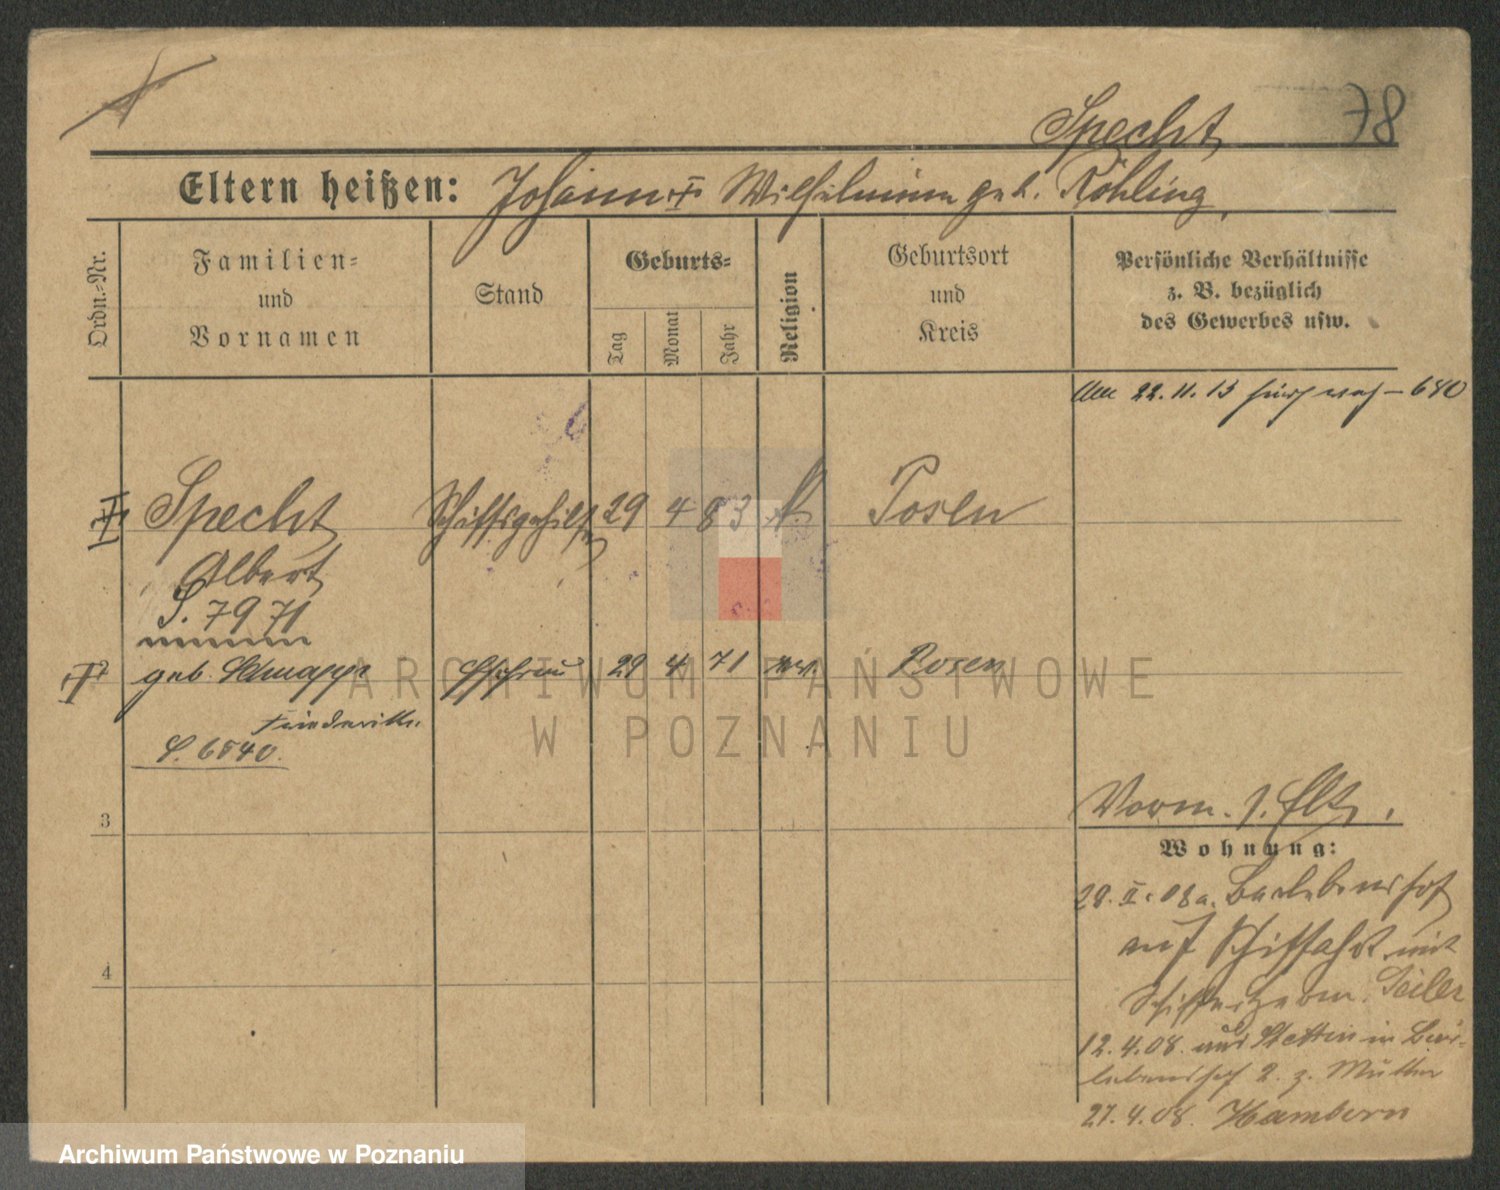 78
Specht
Eltern heißen: Johann u. Wilhelmine geb. Röhling.
Ordn.-Nr.
Familien-
und
Vornamen
Stand
Geburts-
Tag
Monat
Jahr
Religion
Geburtsort
und
Kreis
Persönliche Verhältnisse
z. B. bezüglich
des Gewerbes usw.
22. 11. 13 – 680
Specht Schiffsgehilfe 29 4 83 k Posen
Albert
S. 7971
geb. Knappe Ehefrau 29 4 71 ev. Posen
Friederike
S. 6840.
3
Vorm.
Wohnung:
4
29. II. 08 a. Berlebenshof
auf Schiffahrt mit
Schiffer Herm. Seiler
12. 4. 08. aus Stettin in
2. z. Mutter
27. 4. 08. Hamborn
ARCHIWUM PAŃSTWOWE
W POZNANIU
Archiwum Państwowe w Poznaniu